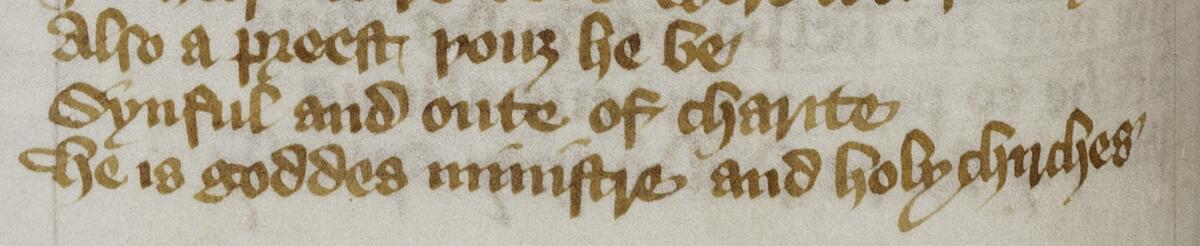 Also a preest þouȝ he be
Synful and oute of charite
he is goddes ministre and holy chirches